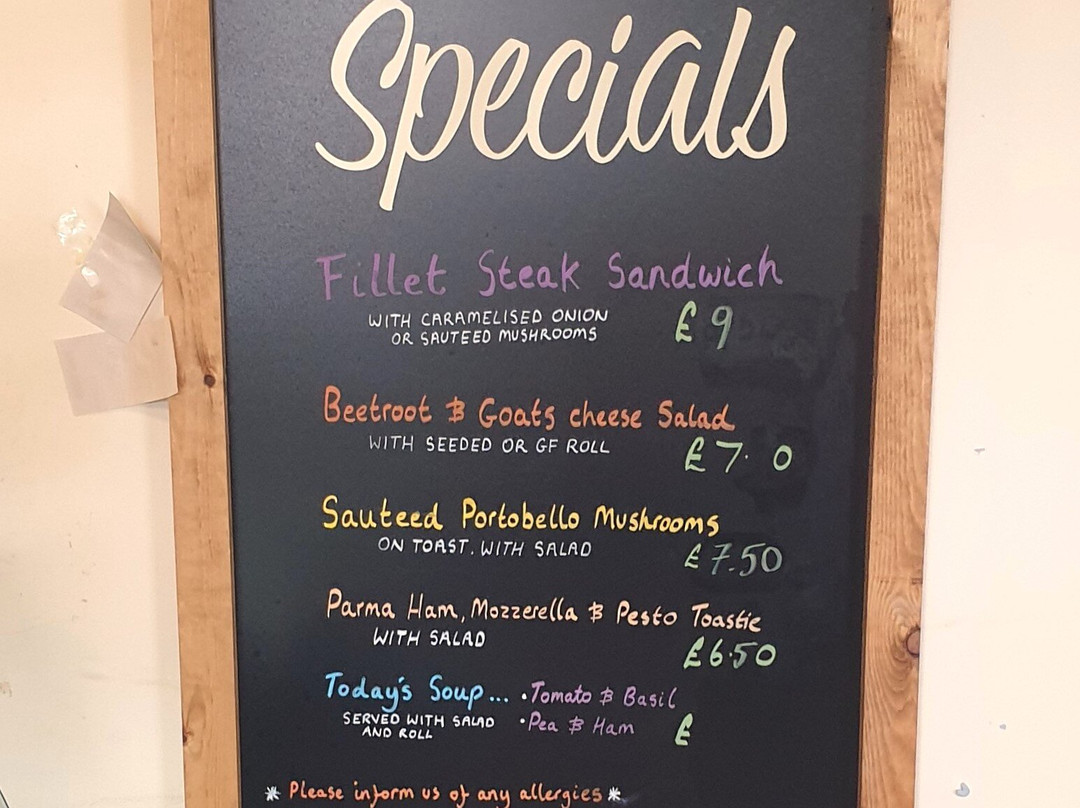 Specials
Fillet Steak Sandwich
WITH CARAMELISED ONION
OR SAUTEED MUSHROOMS
£9
Beetroot & Goats cheese Salad
WITH SEEDED OR GF ROLL
£7. 0
Sauteed Portobello Mushrooms
ON TOAST. WITH SALAD
£7.50
Parma Ham, Mozzerella & Pesto Toastie
WITH SALAD
£6.50
Today's Soup... • Tomato & Basil
SERVED WITH SALAD • Pea & Ham
AND ROLL
£
* Please inform us of any allergies *